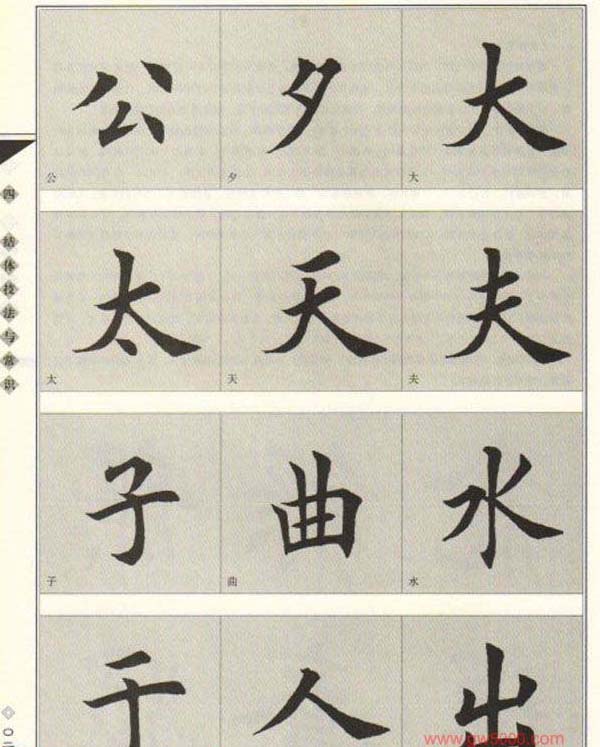 公 夕 大
公 夕 大
太 天 夫
太 天 夫
子 曲 水
子 曲 水
于 人 出
四 结体技法与常识
www.gw8000.com